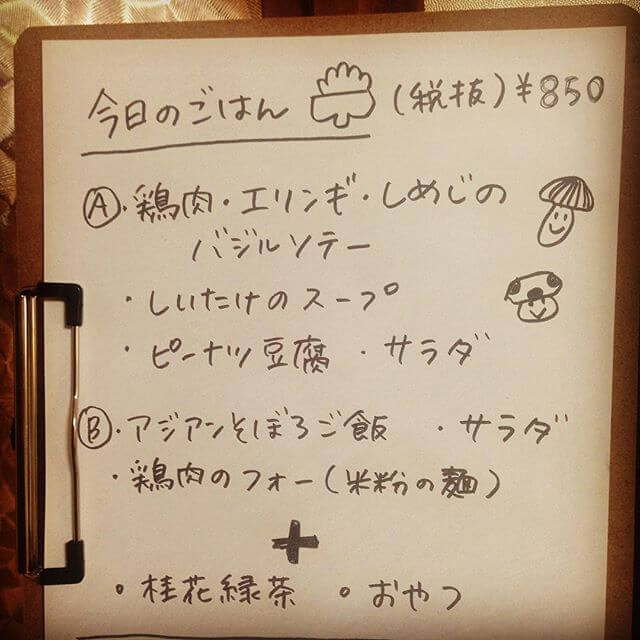 今日のごはん (税抜) ¥850
Ⓐ・鶏肉・エリンギ・しめじの
バジルソテー
・しいたけのスープ
・ピーナツ豆腐 ・サラダ
Ⓑ・アジアンそぼろご飯 ・サラダ
・鶏肉のフォー(米粉の麺)
+
○桂花緑茶 ○おやつ